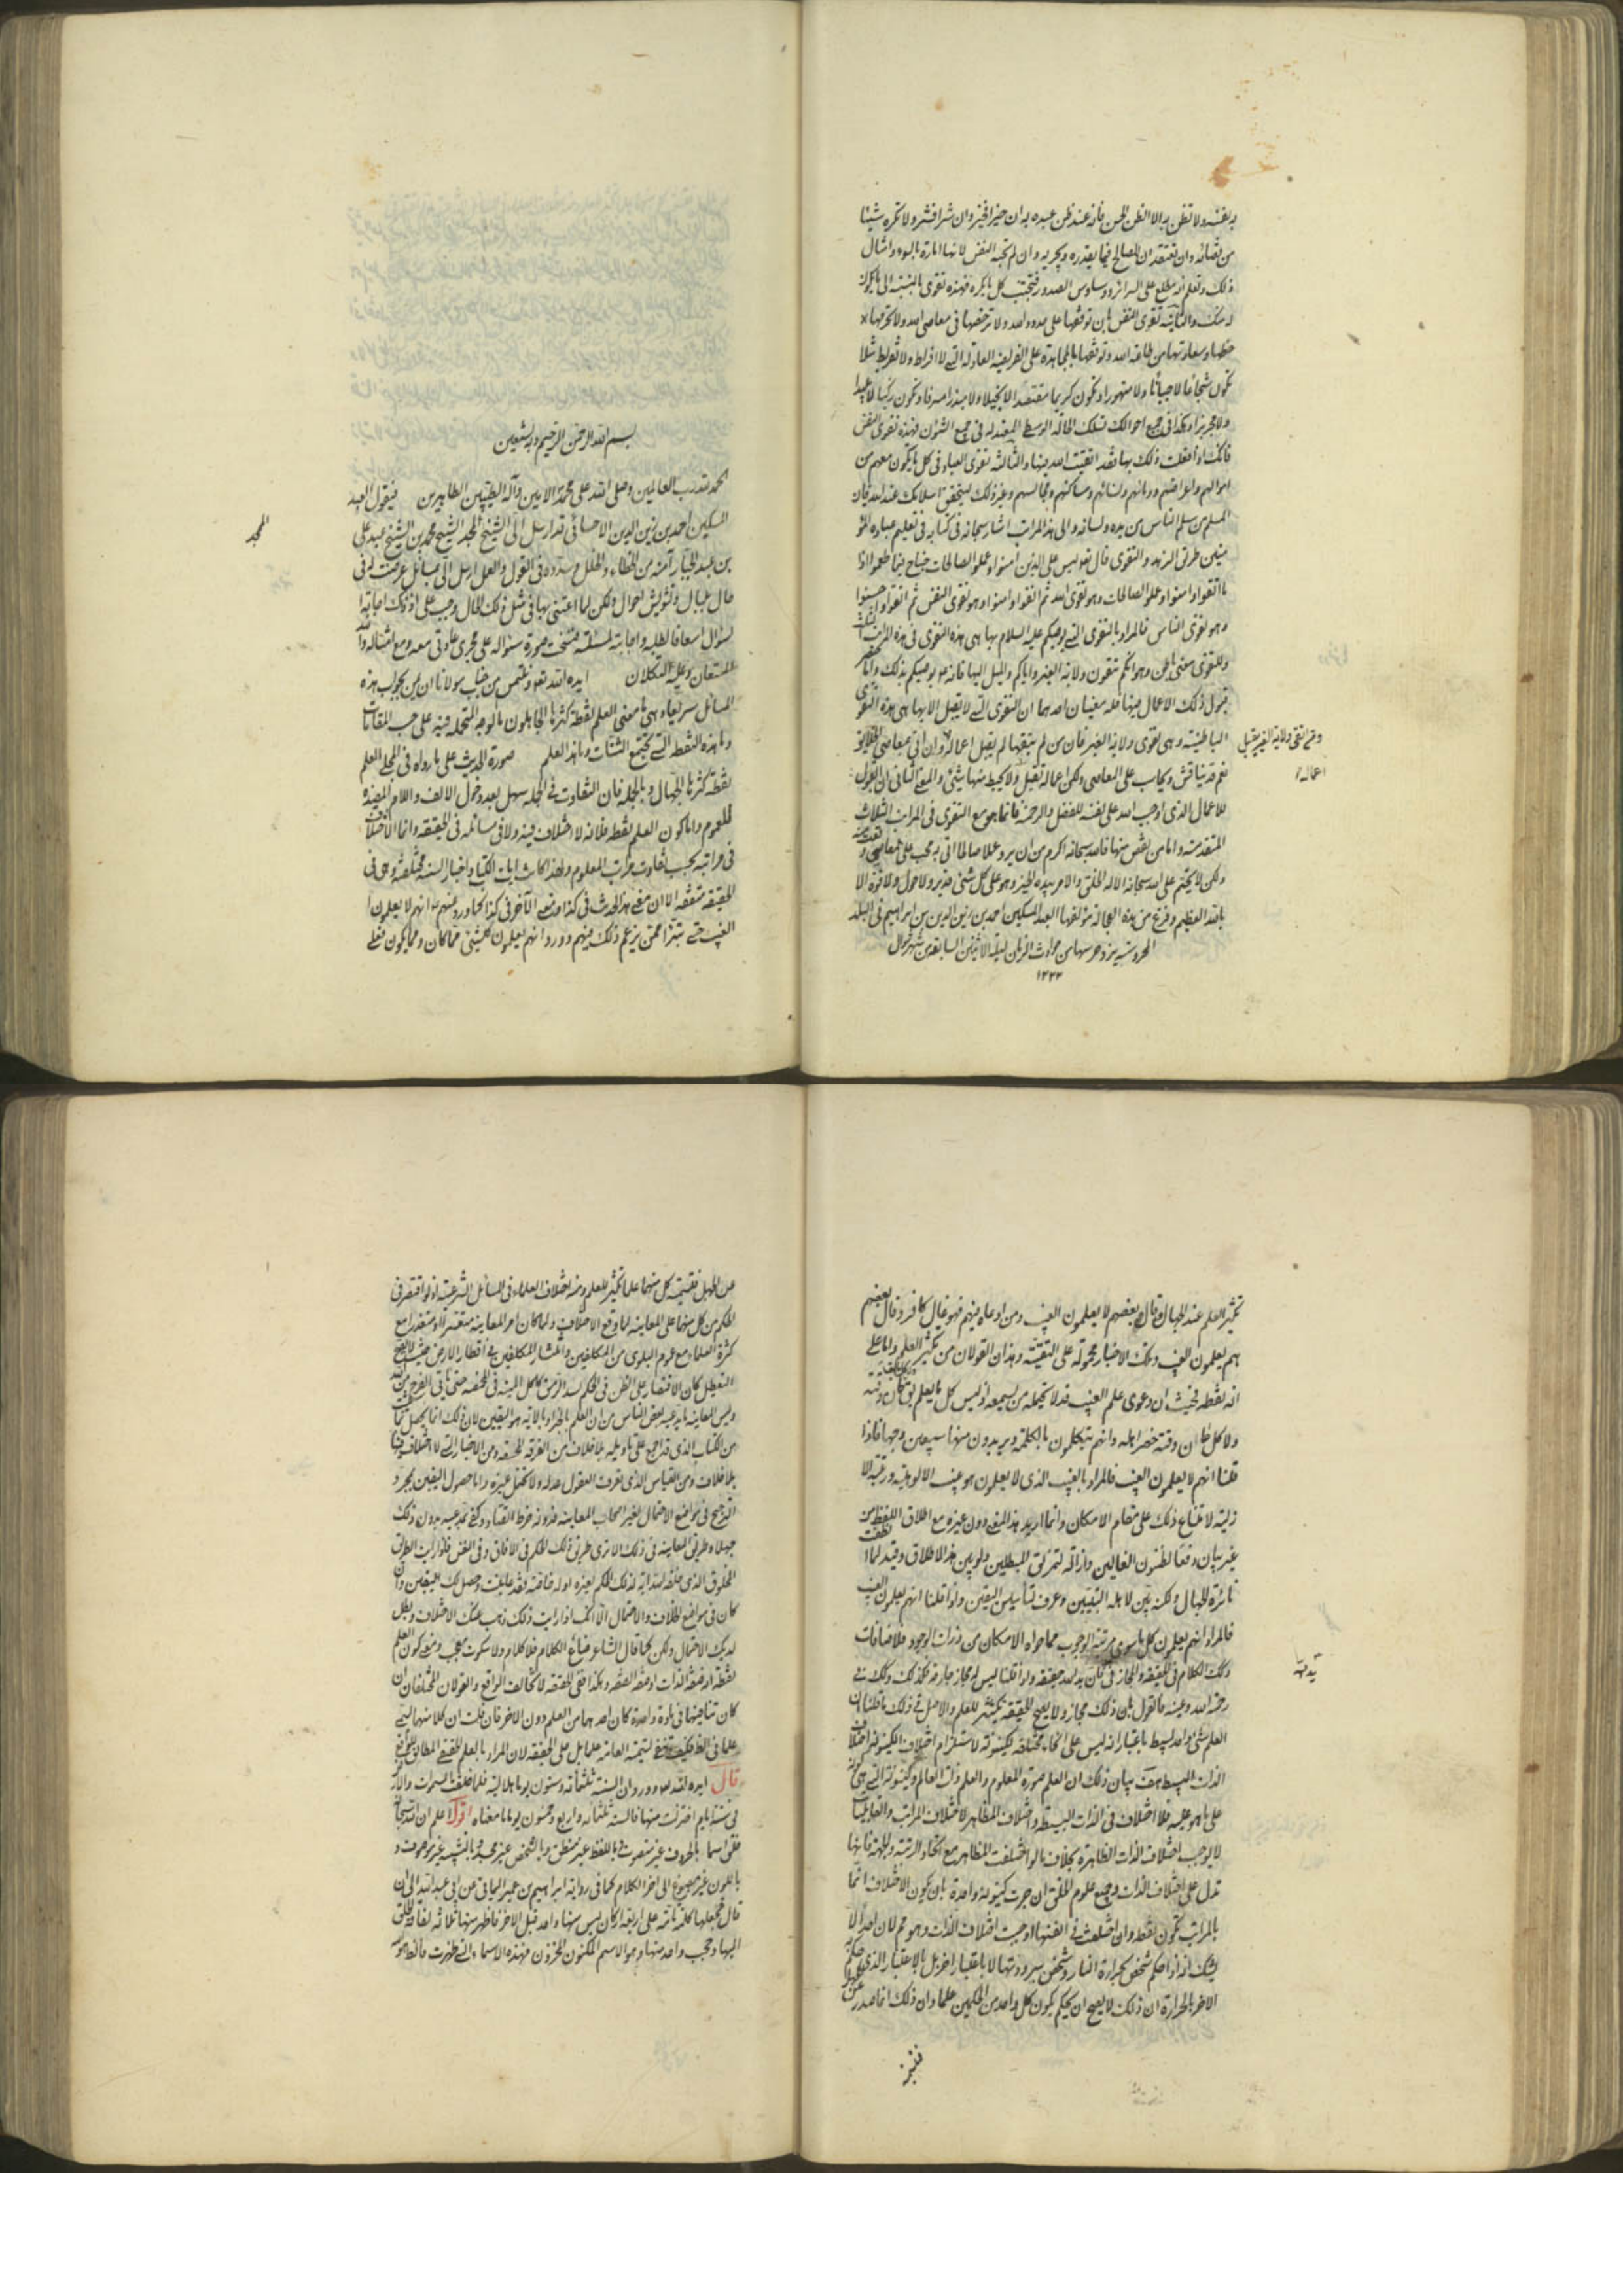 به نفسه ولا تظن به الا الظن الحسن فانه عند ظن عبده به ان خيرا فخير وان شرا فشر ولا تكره شيئا
من قضائه وان تعتقد ان الصالح فيما يقدره ويجريه وان لم تحبه النفس لانها امارة بالسوء وامثال
ذلك وتعلم انه مطلع على السرائر ووساوس الصدور فتجتنب كل ما يكره فهذه تقوى بالنسبة الى ما يكون
له منك والثانية تقوى النفس بان توقفها على حدود الله ولا ترخصها في معاصي الله ولا تحرمها
حظها وسعادتها من طاعة الله وتوقفها بالمجاهدة على الفريضة العادلة التي لا افراط ولا تفريط مثلا
تكون شجاعا لا جبانا ولا متهورا وتكون كريما مقتصدا لا بخيلا ولا مبذرا مسرفا وتكون زكيا لا بليدا
ولا جربزا وهكذا في جميع احوالك تسلك الحالة الوسطى المعتدلة في جميع الشؤن فهذه تقوى النفس
فانك اذا فعلت ذلك بها فقد اتقيت الله فيها والثالثة تقوى العباد في كل ما يكون معهم من
اموالهم واعراضهم ودمائهم ولسانهم ومساكنهم ومجالسهم وغير ذلك ليتحقق اسلامك عند الله فان
المسلم من سلم الناس من يده ولسانه والى هذه المراتب اشار سبحانه في كتابه في تعليم عباده المؤ
منين طرق الزهد والتقوى قال تعا ليس على الذين امنوا وعملوا الصالحات جناح فيما طعموا اذا
ما اتقوا وامنوا وعملوا الصالحات وهو تقوى الله ثم اتقوا وامنوا وهو تقوى النفس ثم اتقوا واحسنوا
وهو تقوى الناس فالمراد بالتقوى التي يوصيكم عليه السلام بها هي هذه التقوى في هذه المراتب الثلث
وللتقوى معنى باطن وهو انكم تتقون ولاية الغير واياكم والميل اليها فانه يوصيكم بذلك واما
قبول ذلك الاعمال فيها فله معنيان احدهما ان التقوى التي لا يقبل الا بها هي هذه التقوى
الباطنية وهي تقوى ولاية الغير فان من لم يتقها لم يقبل اعماله وان اتى بمعاصي الخلايق
ومن اتقى ولاية الغير يقبل
اعماله
نعم قد يناقش ويحاسب على المعاصي ولكن اعماله تقبل ولا يحبط منها شيئ والمعنى الثاني ان القبول
للاعمال الذي اوجب الله على نفسه للفضل والرحمة فانما هو مع التقوى في المراتب الثلاث
المتقدمة واما من نقص منها فالله سبحانه اكرم من ان يرد عملا صالحا اتى به محب على معاصي
ولكن لا يحتم على الله سبحانه الا له الخلق والامر بيده الخير وهو على كل شيئ قدير ولا حول ولا قوة الا
بالله العظيم وفرغ من هذه العجالة مؤلفها العبد المسكين احمد بن زين الدين بن ابراهيم في البلد
المحروسة يزد حرسها من حوادث الزمان ليلة الاثنين السابعة من شهر شوال
١٢٢٣
بسم الله الرحمن الرحيم وبه نستعين
الحمد لله رب العالمين وصلى الله على محمد الامين وآله الطيبين الطاهرين فيقول العبد
المسكين احمد بن زين الدين الاحسائي قد ارسل الى الشيخ الممجد الشيخ محمد بن الشيخ عبد علي
الممجد
بن عبد الجبار آمنه من الخطاء والخلل وسدده في القول والعمل ارسل الى بمسائل عرضت له في
حال بلبال وتشويش احوال ولكن لما اعتنى بها في مثل ذلك الحال وجب على اذ ذاك اجابة
لسؤال اسعافا لطلبه واجابة لمسئلته فنسخت صورة سؤاله على مجرى عادتي معه ومع امثاله والله
المستعان وعليه التكلان ايده الله تعا ونلتمس من جناب مولانا ان يمن بجواب هذه
المسائل سريعا وهي ما معنى العلم نقطة كثرها الجاهلون بالوجه المتحمله فيه على حسب المقامات
وما هذه النقطة التي تجتمع الشتات وما هذا العلم صورة الحديث على ما رواه في المجلى العلم
نقطة كثرها الجهال وبالجملة فان التفاوت في الجملة سهل بعد دخول الالف واللام المفيدة
للعموم واما كون العلم نقطة فلانه لا اختلاف فيه ولا في مسائله في الحقيقة وانما الاختلاف
في مراتبه بحسب تفاوت مراتب المعلوم ولهذا كانت ايات الكتاب واخبار السنة مختلفة وهي في
الحقيقة متفقة الا ان معنى هذا الحديث في كذا ومعنى الآخر في كذا كما ورد عنهم انهم لا يعلمون
الغيب حتى تبرؤا ممن يزعم ذلك فيهم وورد انهم يعلمون كل شيئ مما كان ومما يكون فعلى
تكثير العلم عند الجهال قال بعضهم لا يعلمون الغيب ومن ادعاه فيهم فهو غال كافر وقال بعضهم
بهم يعلمون الغيب وتلك الاخبار محمولة على التقية وهذان القولان من تكثير العلم واما على
انه نقطة فحيث ان دعوى علم الغيب قد لا تحتمله من يسمعه اذ ليس كل ما يعلم يقال
ولا كل ما حان وقته حضر اهله وانهم يتكلمون بالكلمة ويريدون منها سبعين وجها فاذا
قلنا انهم لا يعلمون الغيب فالمراد بالغيب الذي لا يعلمون هو غيب الالوهية ورتبة الا
زلية لامتناع ذلك على مقام الامكان وانما اريد هذا المعنى دون غيره مع اطلاق اللفظ من
غير بيان دفعا لظنون الغالين وازالة لتمزلق المبطلين ولو بين هذا الاطلاق وقيد لما انطفت
نائرة الجهال ولكنه بين لاهله التبيين وعرف لتأسيس اليقين واذا قلنا انهم يعلمون الغيب
فالمراد انهم يعلمون كل ما سوى مرتبة الوجوب مما حواه الامكان من ذرات الوجود فلا منافات
وكك الكلام في الحقيقة والمجاز في ان يد الله حقيقة
يد الله
رحمة الله وعينه فالقول بان ذلك مجاز ولا يصح الحقيقة تكثير للعلم والاصل في ذلك ما قلنا ان
العلم شيئ واحد بسيط باعتبار انه ليس على انحاء مختلفة لكينونته لاستلزام اختلاف الكينونة اختلاف
الذات البسيط هف بيان ذلك ان العلم صورة المعلوم والعلم ذات العالم وكينونته التي هي
على ما هو عليه فلا اختلاف في الذات البسيطة واختلاف المظاهر لاختلاف المراتب والقابليات
لا يوجب اختلاف الذات الظاهرة بخلاف ما لو اختلفت المظاهر مع اتحاد الرتبة والجهة فانها
تدل على اختلاف الذات وجميع علوم الخلق ان جرت كينونة واحدة بان يكون الاختلاف انما
بالمراتب تكون نقطة وان اختلفت في انفسها اوجبت اختلاف الذات وهو محال لان احدا لا
يشك انه اذا حكم شخص بحرارة النار وشخص ببرودتها لا باعتبار اخر بل بالاعتبار الذي حكم
الاخر بالحرارة ان ذلك لا يصح ان يحكم بكون كل واحد من الحكمين علما وان ذلك انما صدر عن
عن الجهل فتسمية كل منهما علما تكثير للعلم ومنه اختلاف العلماء في المسائل الشرعية اذ لو اقتصر في
الحكم من كل منهما على المعاينة لما وقع الاختلاف ولما كان امر المعاينة متعسرا او متعذرا مع
كثرة العلماء مع عموم البلوى من المكلفين وانتشار المكلفين في اقطار الارض بحيث لا يصح
التعطيل كان الاقتصار على الظن في الحكم لسد الرمق كاكل الميتة في المخمصة حتى يأتي الفرج من الله
وليس المعاينة ما يدعيه بعض الناس من ان العلم بالمراد بالآية هو اليقين لان ذلك انما يحصل
من الكتاب الذي قد اجمع على تأويله بلا خلاف بين الفرقة المحقة ومن الاخبار التي لا اختلاف فيها
بلا خلاف ومن القياس الذي تعرف العقول عدله ولا تحتمل غيره واما حصول اليقين بمجرد
الترجيح في مواضع الاحتمال لغير اصحاب المعاينة فدونه خرط القتاد وكفى مدعيه بدون ذلك
جهلا وطريق المعاينة في ذلك الا ترى طريق ذلك الحكم في الافاق وفي انفس فاذا رايت الطريق
المخلوق الذي خلقه الله آية لذلك الحكم بعينه اوله خاصة فقد عاينت وحصل لك اليقين وان
كان في مواضع الخلاف والاحتمال الا انك اذا رايت ذلك ذهب عنك الاختلاف وبطل
لديك الاحتمال ولكن كما قال الشاعر ضاع الكلام فلا كلام ولا سكوت معجب ومعنى كون العلم
نقطة
كان تنافيهما في مادة واحدة كان احدهما من العلم دون الاخر فان قلت ان كلا منهما يسمى
علما في
قال ايده الله تعا وورد ان السنة ثلثمأة وستون يوما هلالية فلما خلقت السموات والار
في ستة ايام اختزلت منها فالسنة ثلثمأة واربع وخمسون يوما ما معناه اقول اعلم ان الله سبحانه
خلق اسما بالحروف غير مصوت وباللفظ غير منطق وبالشخص غير مجسد وبالتشبيه غير موصوف و
باللون غير مصبوغ الى اخر الكلام كما في رواية ابراهيم بن عمر اليماني عن ابي عبد الله الى ان
قال فجعلها كلمة تامة على اربعة اركان ليس منها واحد قبل الاخر فاظهر منها ثلاثة لفاقة الخلق
اليها وحجب واحد منها وهو الاسم المكنون المخزون فهذه الاسماء التي ظهرت فالظاهر